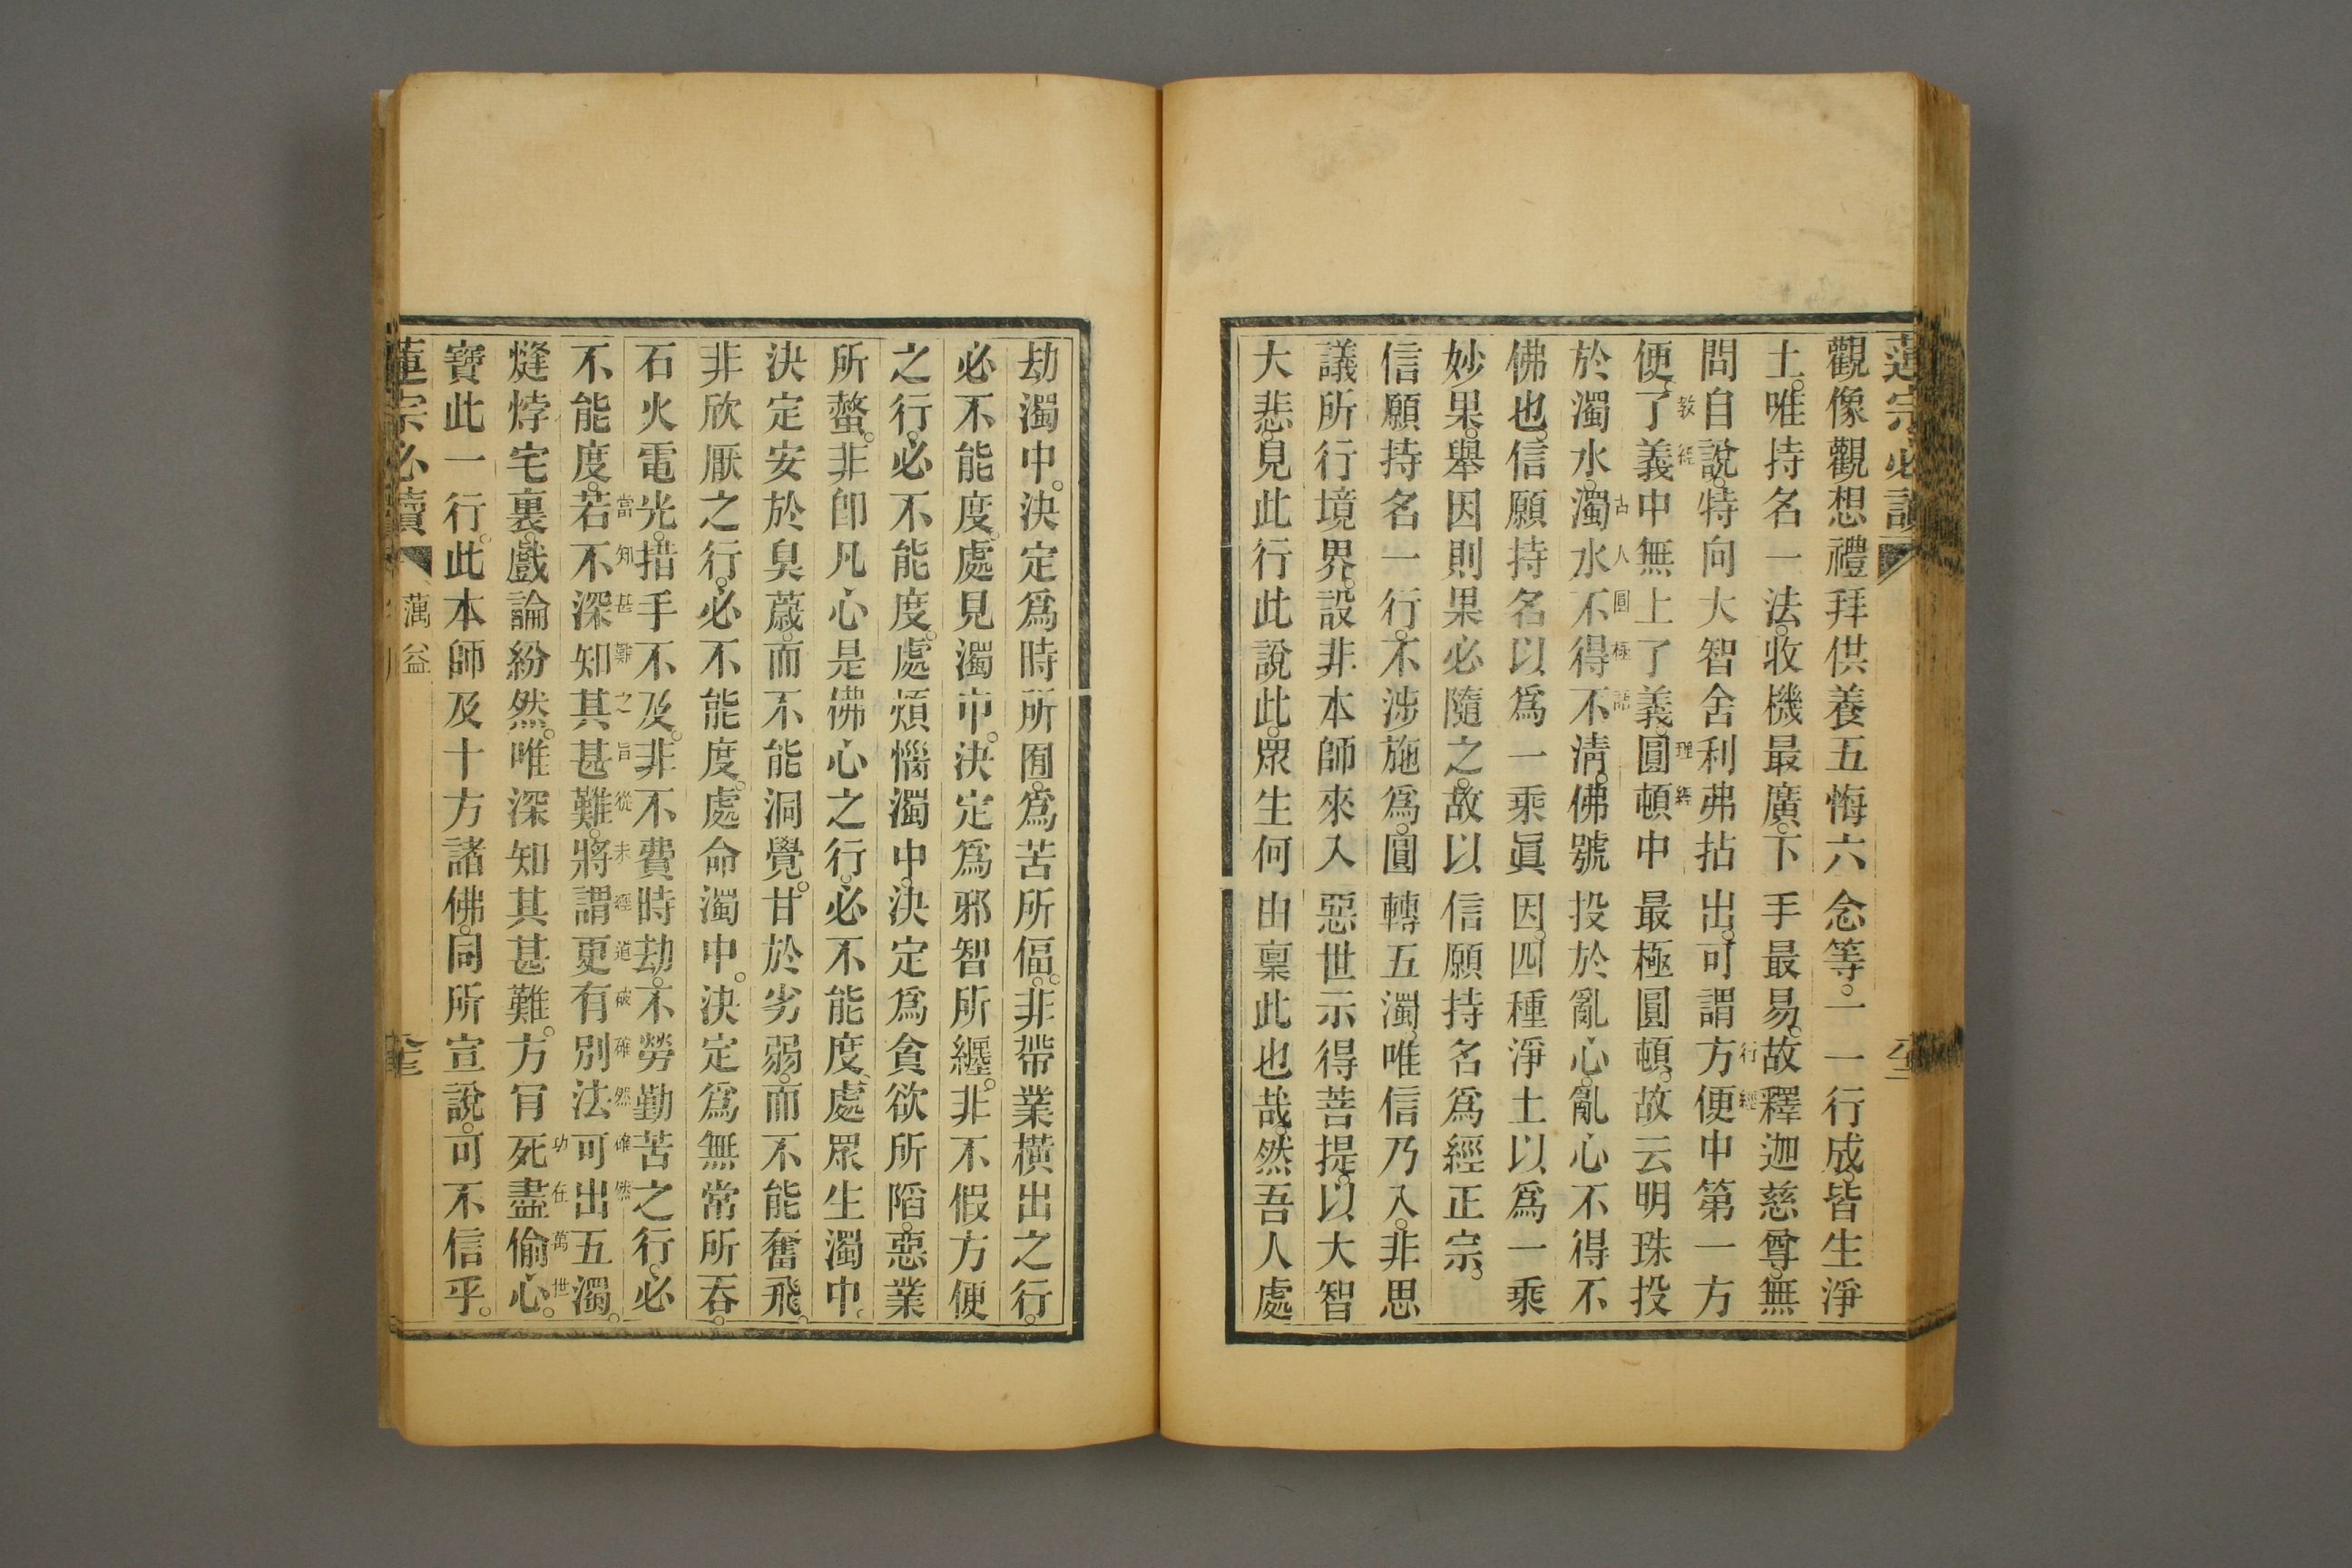 蓮宗必讀
觀像觀想禮拜供養五悔六念等。一一行成。皆生淨
土。唯持名一法。收機最廣。下手最易。故釋迦慈尊。無
行經
問自說。特向大智舍利弗拈出。可謂方便中第一方
教經
理經
便。了義中無上了義。圓頓中最極圓頓。故云明珠投
古人圓極語
於濁水。濁水不得不清。佛號投於亂心。亂心不得不
佛也。信願持名以爲一乘眞因。四種淨土以爲一乘
妙果。舉因則果必隨之。故以信願持名爲經正宗。
信願持名一行。不涉施爲。圓轉五濁。唯信乃入。非思
議所行境界。設非本師來入惡世示得菩提。以大智
大悲。見此行此說此。眾生何由稟此也哉。然吾人處
劫濁中。決定爲時所囿。爲苦所偪。非帶業橫出之行。
必不能度。處見濁中。決定爲邪智所纏。非不假方便
之行。必不能度。處煩惱濁中。決定爲貪欲所陷。惡業
所螫。非卽凡心是佛心之行。必不能度。處眾生濁中。
決定安於臭薉。而不能洞覺。甘於劣弱。而不能奮飛。
非欣厭之行。必不能度。處命濁中。決定爲無常所吞。
石火電光。措手不及。非不費時劫。不勞勤苦之行。必
當知甚難之旨從未經道破確然確然
不能度。若不深知其甚難。將謂更有別法可出五濁。
功在萬世
熢㶿宅裏。戲論紛然。唯深知其甚難。方肎死盡偷心。
寶此一行。此本師及十方諸佛。同所宣說。可不信乎。
蓮宗必讀
蕅益